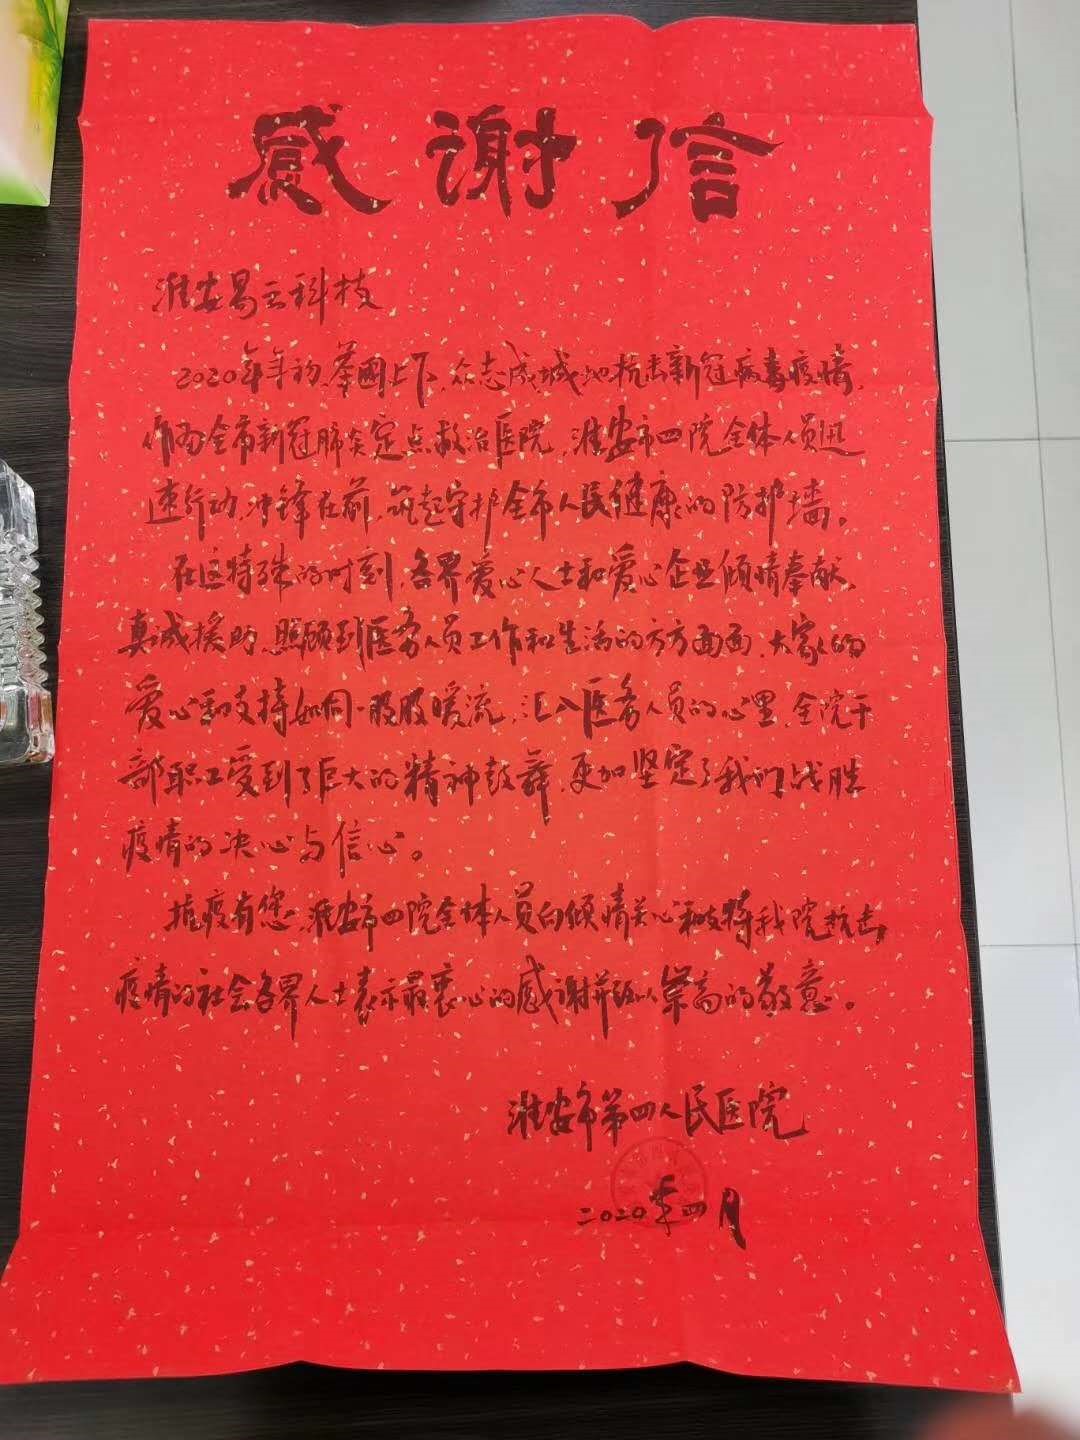 感谢信
淮安易云科技
2020年年初,举国上下,众志成城地抗击新冠病毒疫情,
作为全市新冠肺炎定点救治医院,淮安市四院全体人员迅
速行动,冲锋在前,筑起守护全市人民健康的防护墙。
在这特殊的时刻,各界爱心人士和爱心企业倾情奉献,
真诚援助,照顾到医务人员工作和生活的方方面面,大家的
爱心和支持如同一股股暖流,汇入医务人员的心里,全院干
部职工受到了巨大的精神鼓舞,更加坚定了我们战胜
疫情的决心与信心。
抗疫有您,淮安市四院全体人员向倾情关心和支持我院抗击
疫情的社会各界人士表示最衷心的感谢并致以崇高的敬意。
淮安市第四人民医院
二0二0年四月